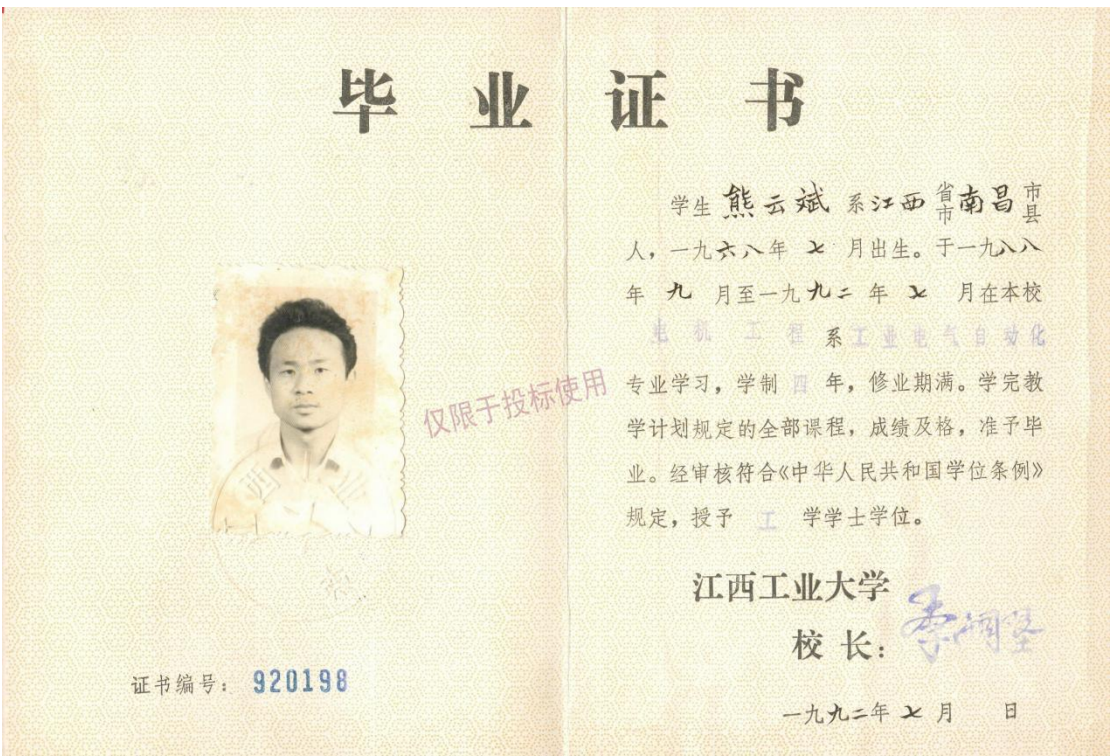 毕业证书
学生 熊云斌 系江西省市南昌市县
人，一九六八年 七 月出生。于一九八八
年 九 月至一九九二 年 七 月在本校
电机工程系工业电气自动化
专业学习，学制 四 年，修业期满。学完教
学计划规定的全部课程，成绩及格，准予毕
业。经审核符合《中华人民共和国学位条例》
规定，授予 工 学学士学位。
仅限于投标使用
江西工业大学
校 长：
证书编号： 920198
一九九二年 七 月 日